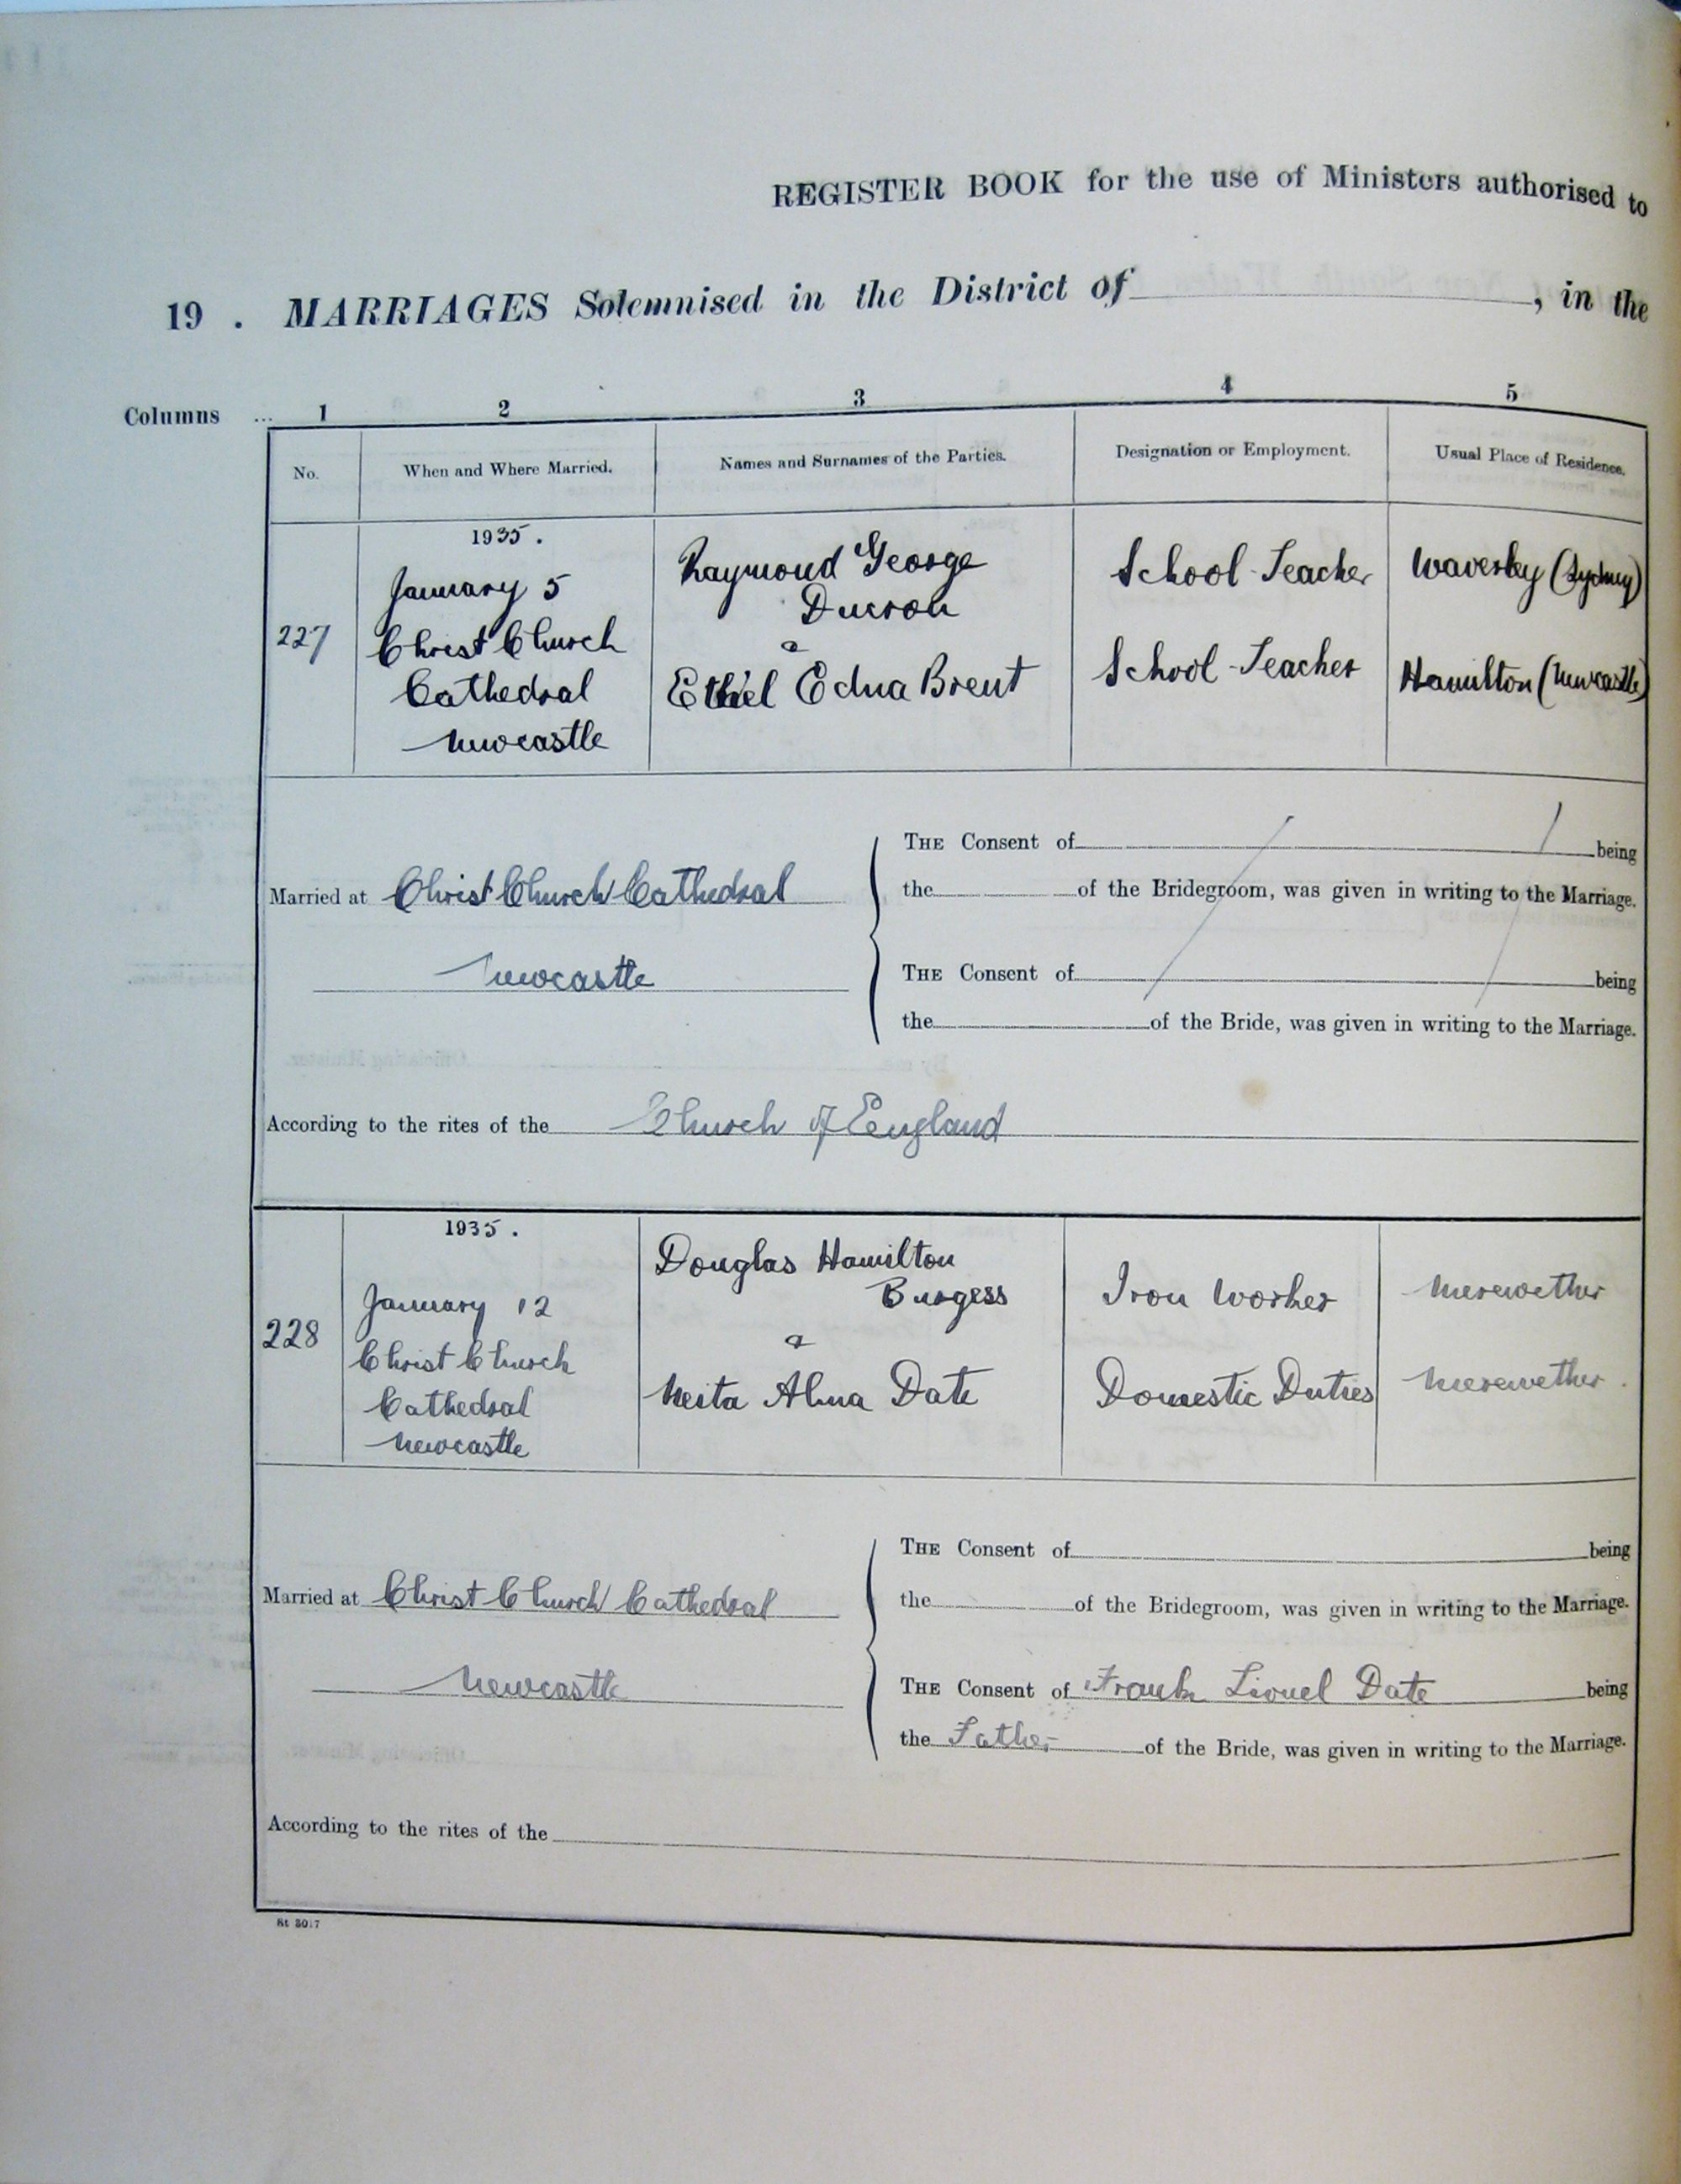 REGISTER BOOK for the use of Ministers authorised to
19 . MARRIAGES Solemnised in the District of , in the
Columns ... 1 2 3 4 5
No. When and Where Married. Names and Surnames of the Parties. Designation or Employment. Usual Place of Residence.
1935.
January 5
Christ Church
Cathedral
Newcastle
227
Raymond George
Ducson
&
Ethel Edna Brent
School Teacher
School Teacher
Waverley (Sydney)
Hamilton (Newcastle)
Married at Christ Church Cathedral
Newcastle
THE Consent of being
the of the Bridegroom, was given in writing to the Marriage.
THE Consent of being
the of the Bride, was given in writing to the Marriage.
According to the rites of the Church of England
1935.
January 12
Christ Church
Cathedral
Newcastle
228
Douglas Hamilton
Burgess
&
Neita Alma Date
Iron Worker
Domestic Duties
Merewether
Merewether.
Married at Christ Church Cathedral
Newcastle
THE Consent of being
the of the Bridegroom, was given in writing to the Marriage.
THE Consent of Frank Lionel Date being
the Father of the Bride, was given in writing to the Marriage.
According to the rites of the
St 5017